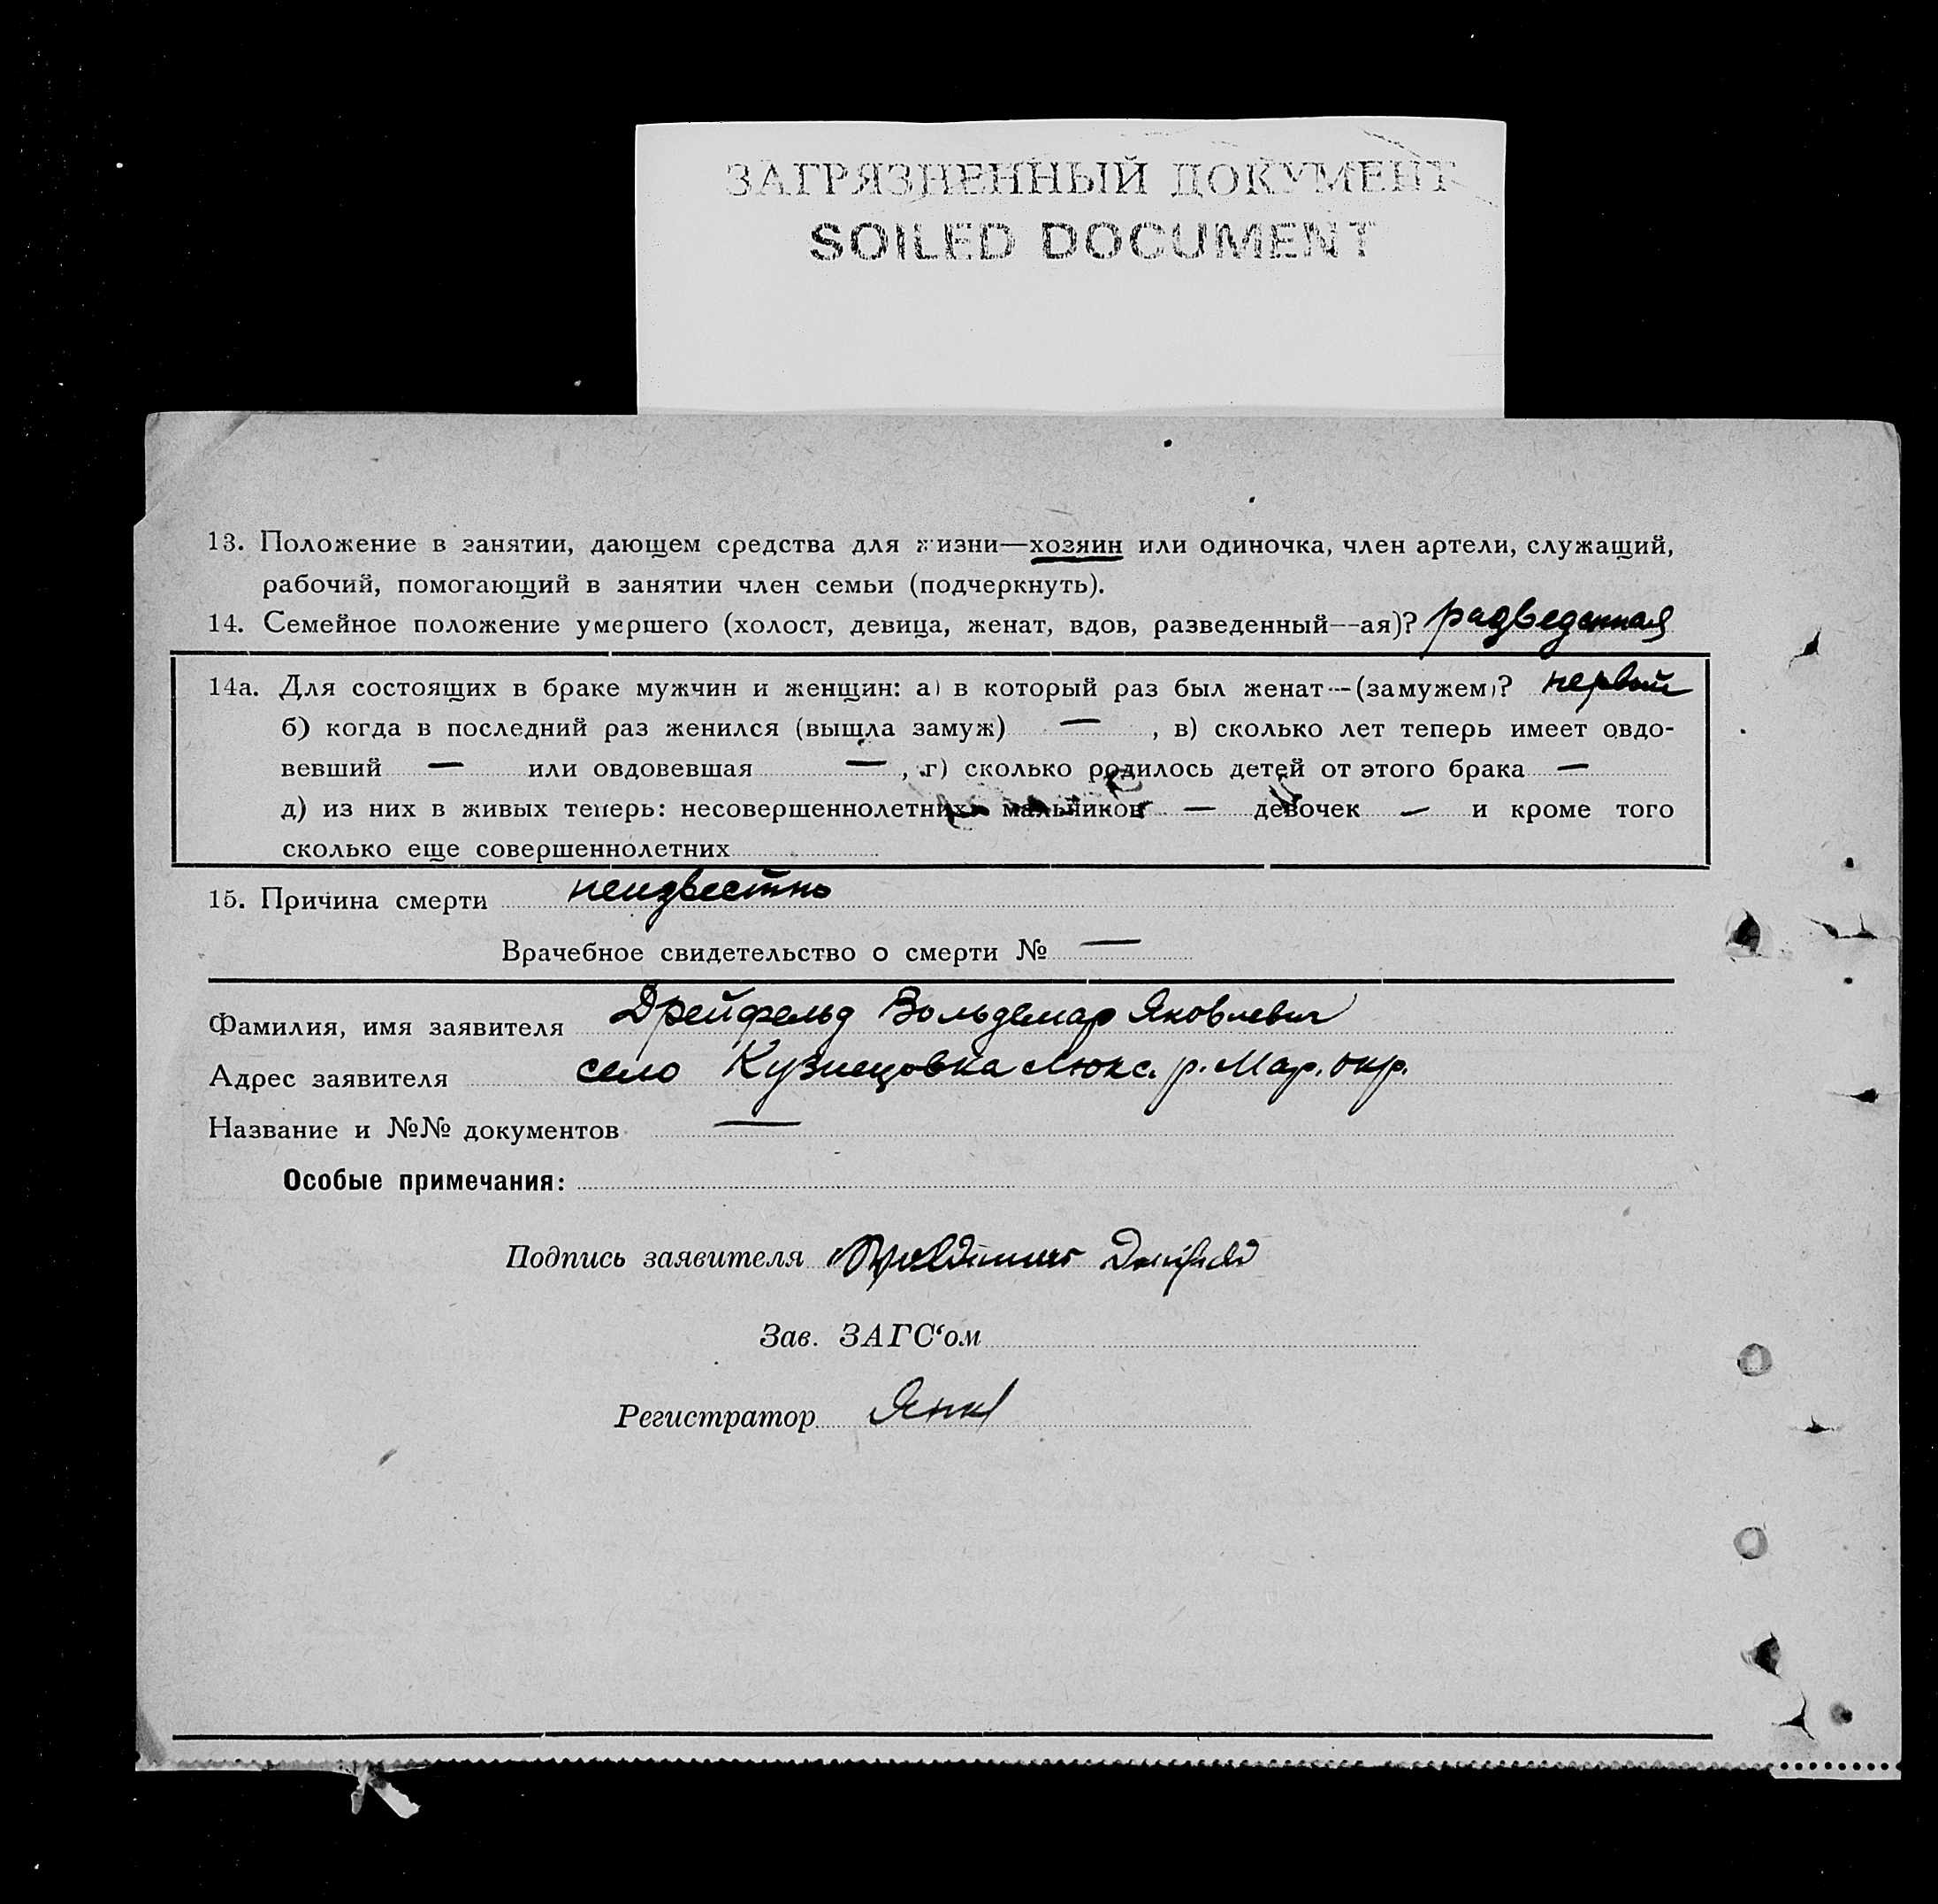 ЗАГРЯЗНЕННЫЙ ДОКУМЕНТ
SOILED DOCUMENT
13. Положение в занятии, дающем средства для жизни—хозяин или одиночка, член артели, служащий,
рабочий, помогающий в занятии член семьи (подчеркнуть).
14. Семейное положение умершего (холост, девица, женат, вдов, разведенный—ая)? разведенная
14а. Для состоящих в браке мужчин и женщин: а) в который раз был женат—(замужем)? первый
б) когда в последний раз женился (вышла замуж) — , в) сколько лет теперь имеет овдо-
вевший — или овдовевшая — , г) сколько родилось детей от этого брака —
д) из них в живых теперь: несовершеннолетних мальчиков — девочек — и кроме того
сколько еще совершеннолетних
15. Причина смерти неизвестно
Врачебное свидетельство о смерти № —
Фамилия, имя заявителя Дрейфельд Вольдемар Яковлевич
Адрес заявителя село Кузнецовка Люкс. р. Мар. окр.
Название и №№ документов —
Особые примечания:
Подпись заявителя Woldemar Dreifeld
Зав. ЗАГС‘ом
Регистратор